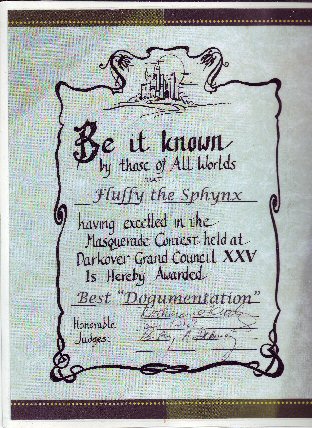 Be it known
by those of All Worlds
that
Fluffy the Sphynx
having excelled in the
Masquerade Contest held at
Darkover Grand Council XXV
Is Hereby Awarded
Best "Dogumentation"
Honorable
Judges: